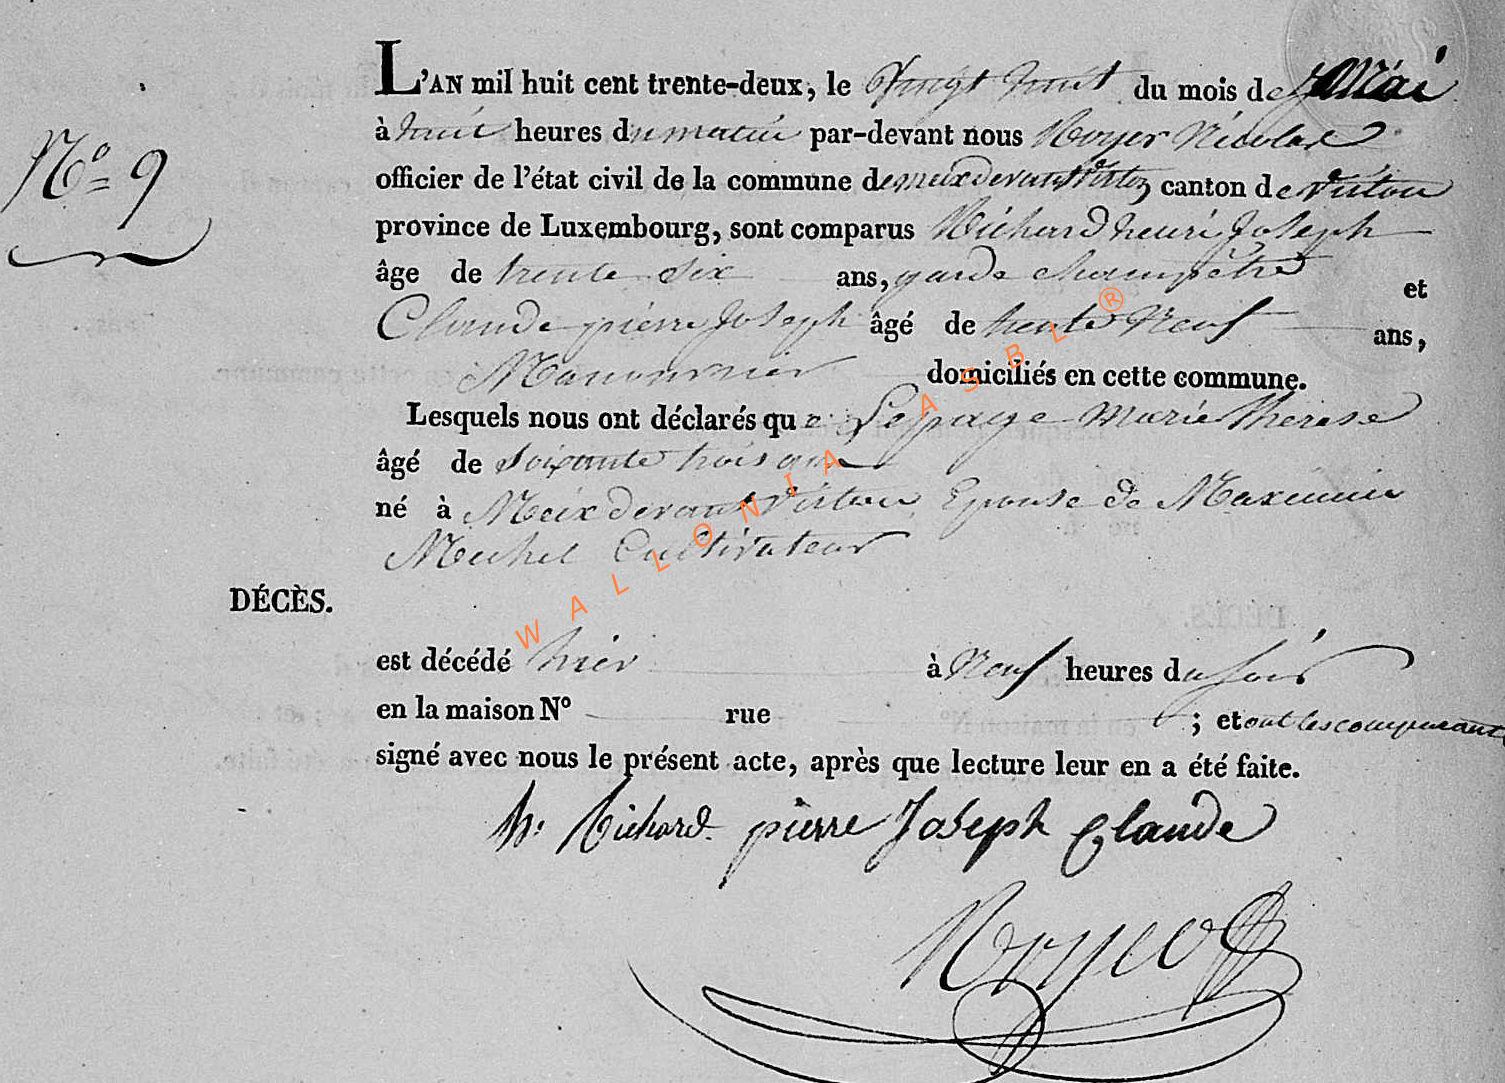 N° 9
L'AN mil huit cent trente-deux, le Vingt huit du mois de Mai
à huit heures du matin par-devant nous Noyer Nicolas
officier de l'état civil de la commune de meix devant Virton canton de Virton
province de Luxembourg, sont comparus Richard henri Joseph
âge de trente six ans, garde champêtre et
Claude pierre Joseph âgé de trente Neuf ans,
Manouvrier domiciliés en cette commune.
Lesquels nous ont déclarés que Lepage Marie Therese
âgé de soixante trois ans
né à Meix devant Virton Epouse de Maximin
Michel Cultivateur
DÉCÈS.
est décédé hier à Neuf heures du soir
en la maison N° rue ; et ont les comparants
signé avec nous le présent acte, après que lecture leur en a été faite.
h. Richard. pierre Joseph Claude
WALLONIA ASBL ®